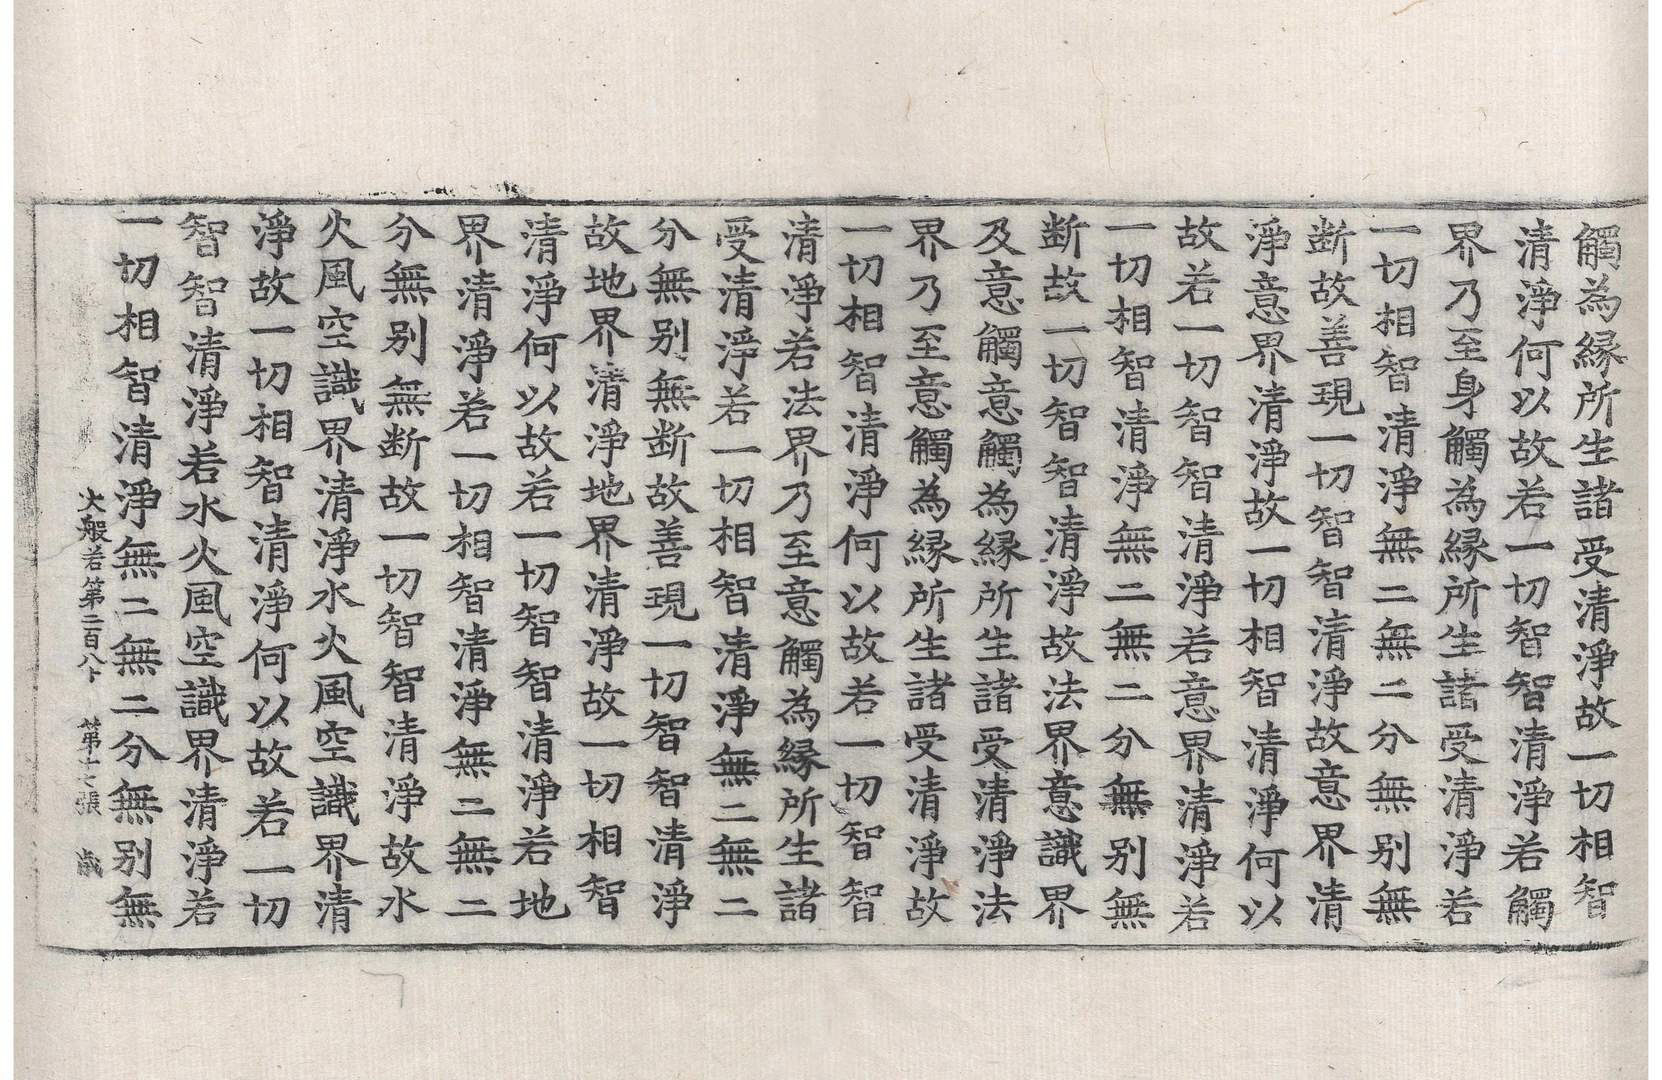 觸為縁所生諸受清淨故一切相智
清淨何以故若一切智智清淨若觸
界乃至身觸為縁所生諸受清淨若
一切相智清淨無二無二分無别無
断故善現一切智智清淨故意界清
淨意界清淨故一切相智清淨何以
故若一切智智清淨若意界清淨若
一切相智清淨無二無二分無别無
断故一切智智清淨故法界意識界
及意觸意觸為縁所生諸受清淨法
界乃至意觸為縁所生諸受清淨故
一切相智清淨何以故若一切智智
清淨若法界乃至意觸為縁所生諸
受清淨若一切相智清淨無二無二
分無别無断故善現一切智智清淨
故地界清淨地界清淨故一切相智
清淨何以故若一切智智清淨若地
界清淨若一切相智清淨無二無二
分無别無断故一切智智清淨故水
火風空識界清淨水火風空識界清
淨故一切相智清淨何以故若一切
智智清淨若水火風空識界清淨若
一切相智清淨無二無二分無别無
大般若第二百八十 第十七張 歲